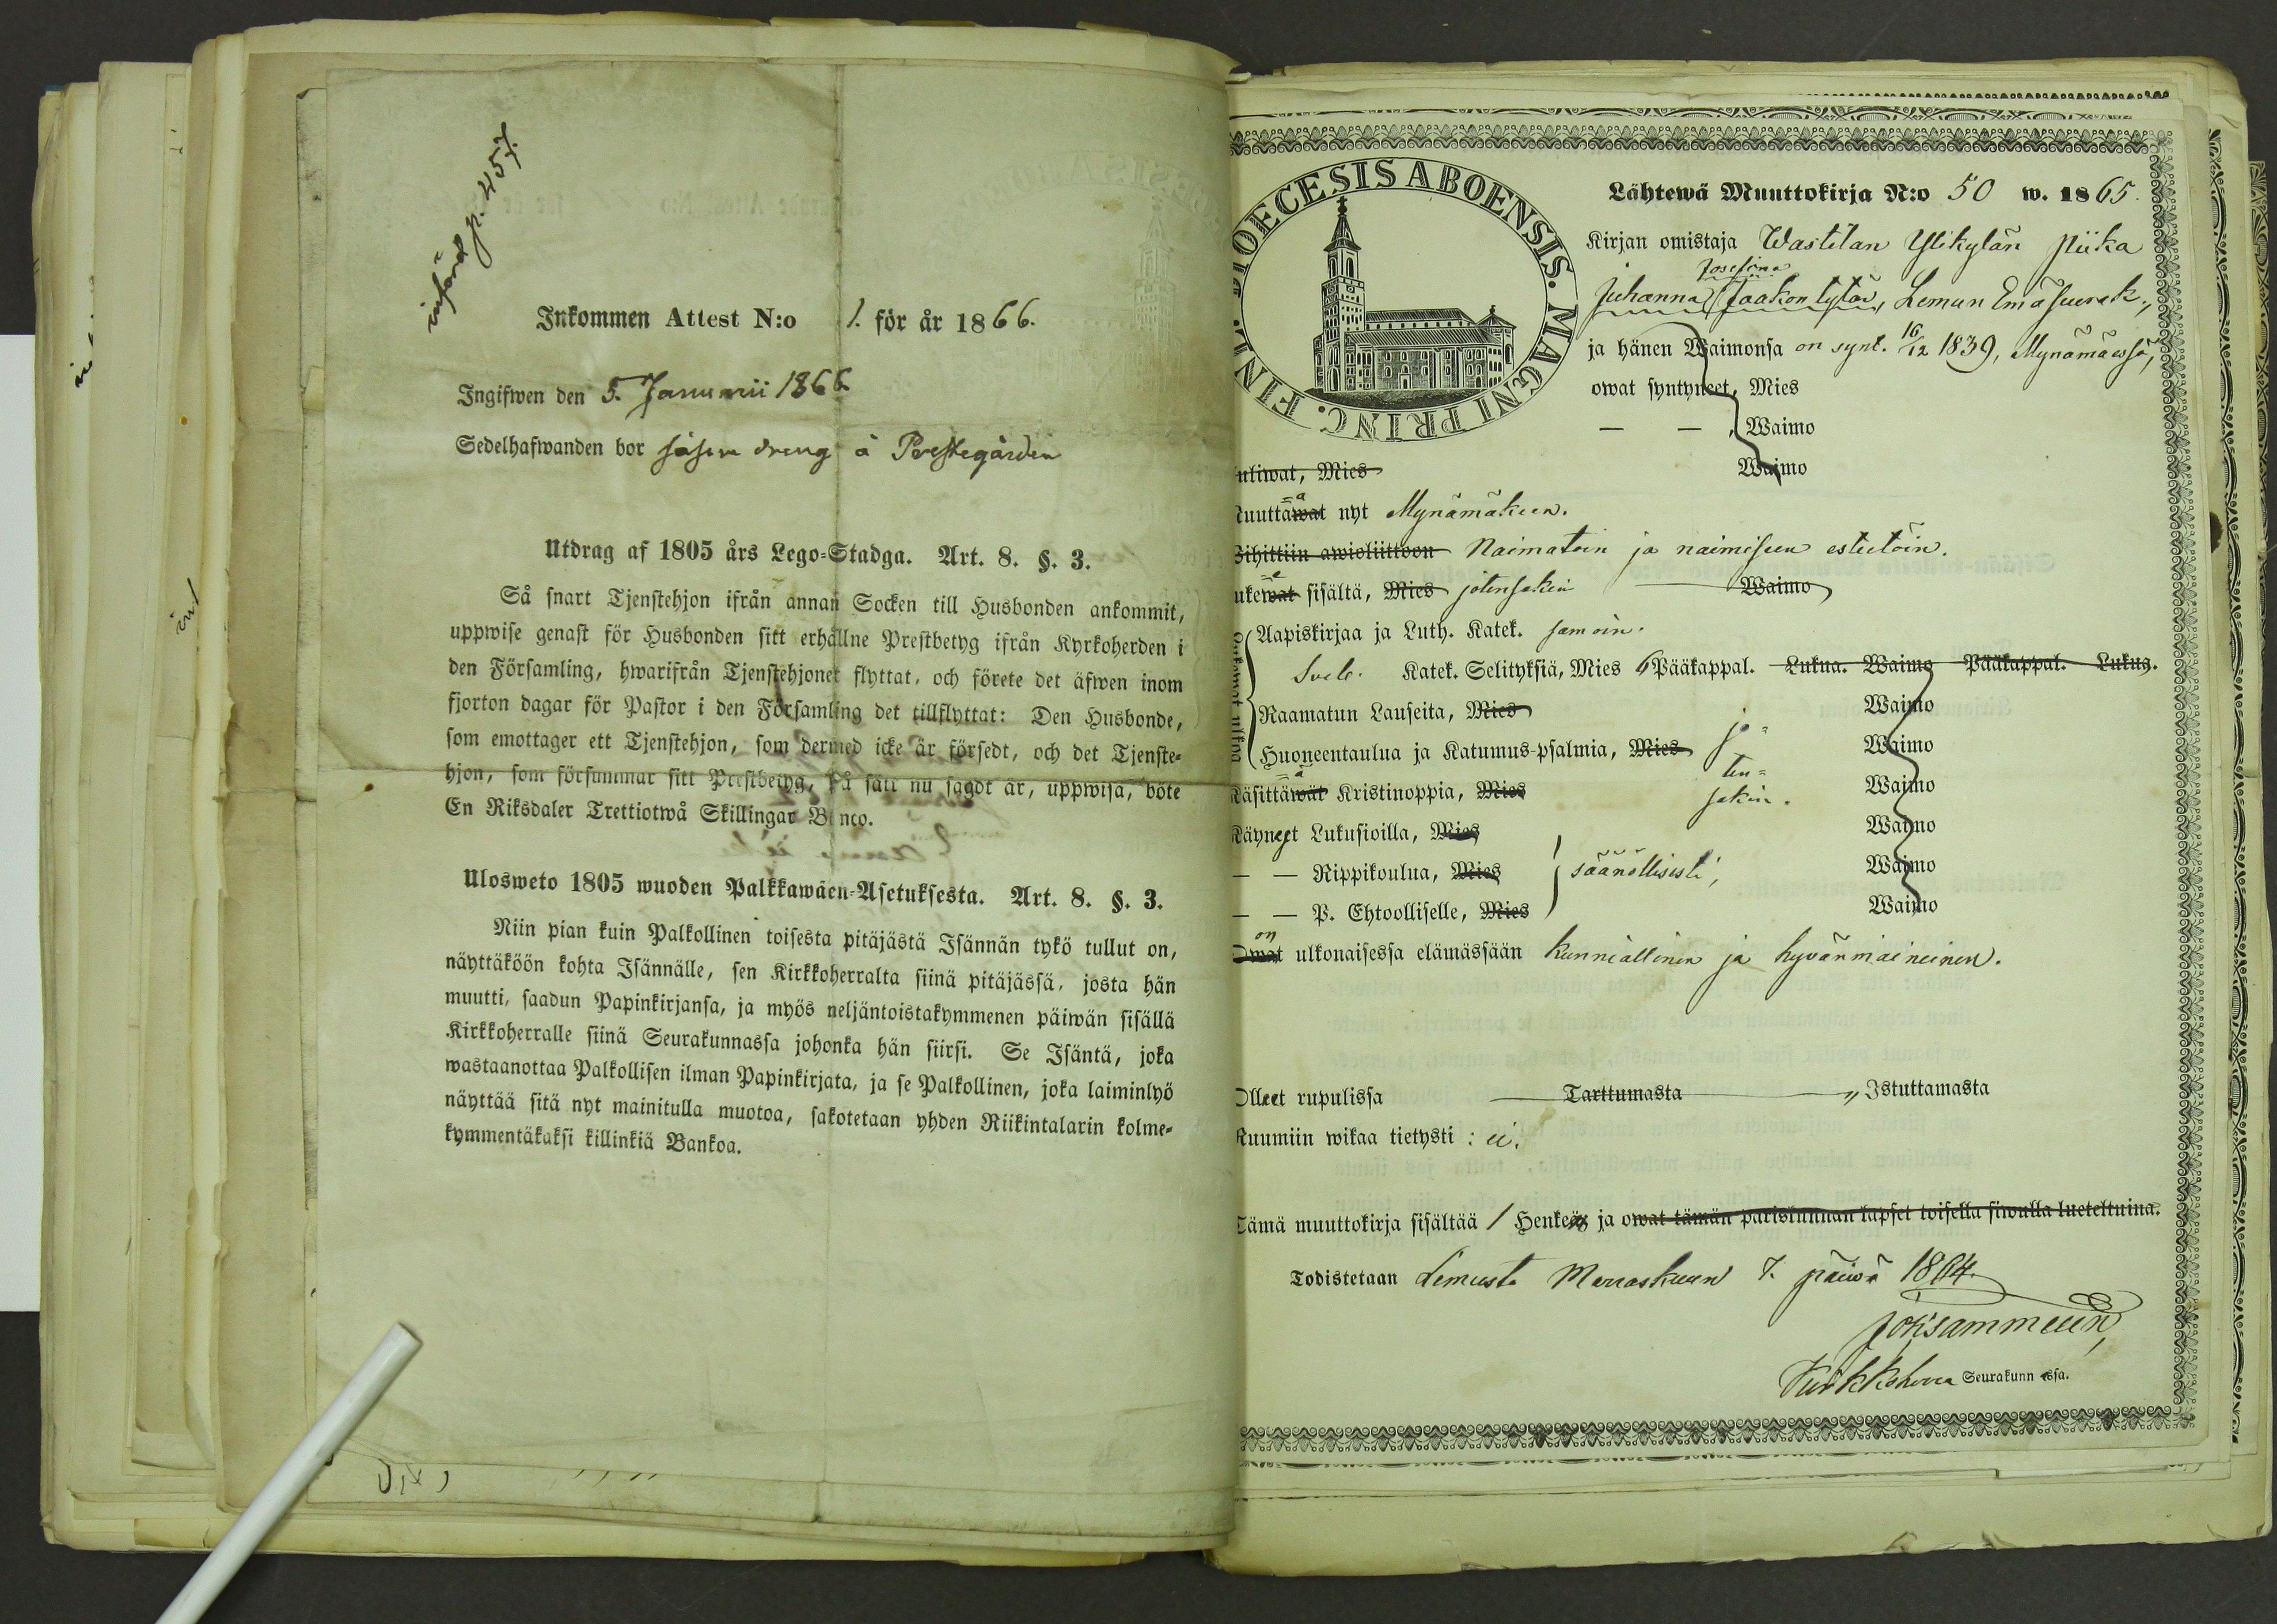 införd p. 457.
Inkommen Attest N:o 1. för år 1866.
Ingifwen den 5. Januarii 1866
Sedelhafwanden bor såsom dreng å Prestegården
Utdrag af 1805 års Lego-Stadga. Art. 8. §. 3.
Så snart Tjenstehjon ifrån annan Socken till Husbonden ankommit,
uppwise genast för Husbonden sitt erhållne Prestbetyg ifrån Kyrkoherden i
den Församling, hwarifrån Tjenstehjonet flyttat, och förete det äfwen inom
fjorton dagar för Pastor i den Församling det tillflyttat: Den Husbonde,
som emottager ett Tjenstehjon, som dermed icke är försedt, och det Tjenste-
hjon, som försummar sitt Prestbetyg, på sätt nu sagdt är, uppwisa, böte
En Riksdaler Trettiotwå Skillingar Banco.
Ulosweto 1805 wuoden Palkkawäen-Asetuksesta. Art. 8. §. 3.
Niin pian kuin Palkollinen toisesta pitäjästä Isännän tykö tullut on,
näyttäköön kohta Isännälle, sen Kirkkoherralta siinä pitäjässä, josta hän
muutti, saadun Papinkirjansa, ja myös neljäntoistakymmenen päiwän sisällä
Kirkkoherralle siinä Seurakunnassa johonka hän siirsi. Se Isäntä, joka
wastaanottaa Palkollisen ilman Papinkirjata, ja se Palkollinen, joka laiminlyö
näyttää sitä nyt mainitulla muotoa, sakotetaan yhden Riikintalarin kolme-
kymmentäkaksi killinkiä Bankoa.
DIOECESIS ABOENSIS. MAGNI PRINC. FINL.
Lähtewä Muuttokirja N:o 50 w. 1865.
Kirjan omistaja Wastilan Ylikylän piika
Josefina
Juhanna Jaakontytär, Lemun Emäseurak.,
ja hänen Waimonsa on synt. 16/12 1839, Mynämäessä,
owat syntyneet, Mies
— — , Waimo
uliwat, Mies Waimo
Muuttawat =a nyt Mynämäkeen.
Wihittiin awioliittoon Naimatoin ja naimiseen esteetöin.
ukewat =e sisältä, Mies jotensakin Waimo
Aapiskirjaa ja Luth. Katek. samoin.
Sveb. Katek. Selityksiä, Mies 6 Pääkappal. Lukua. Waimo Pääkappal. Lukua.
Raamatun Lauseita, Mies Waimo
Huoneentaulua ja Katumus-psalmia, Mies jo= Waimo
Käsittäwät =ä Kristinoppia, Mies ten= sakin. Waimo
Käyneet Lukusioilla, Mies Waimo
— — Rippikoulua, Mies säänöllisesti, Waimo
— — P. Ehtoolliselle, Mies Waimo
Owat on ulkonaisessa elämässään kunniallinen ja hyvänmaineinen.
Olleet rupulissa Tarttumasta „ Istuttamasta
Ruumiin wikaa tietysti: ei.
Tämä muuttokirja sisältää 1 Henkeä ja owat tämän pariskunnan lapset toisella siwulla lueteltuina.
Todistetaan Lemusta Marraskuun 7. päiwä 1864.
Kirkkoherra Seurakunnassa.